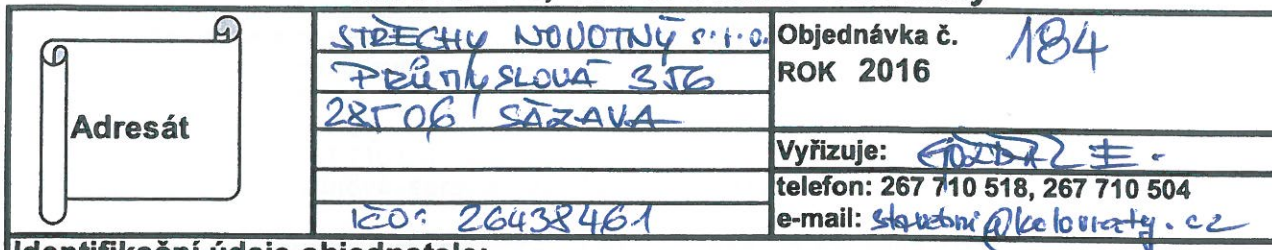 Adresát
STŘECHY NOVOTNÝ s.r.o.
PRŮMYSLOVÁ 356
28506 SÁZAVA
IČO: 26438461
Objednávka č. 184
ROK 2016
Vyřizuje:
telefon: 267 710 518, 267 710 504
e-mail: stavebni@kolovraty.cz
Identifikační údaje objednatele: